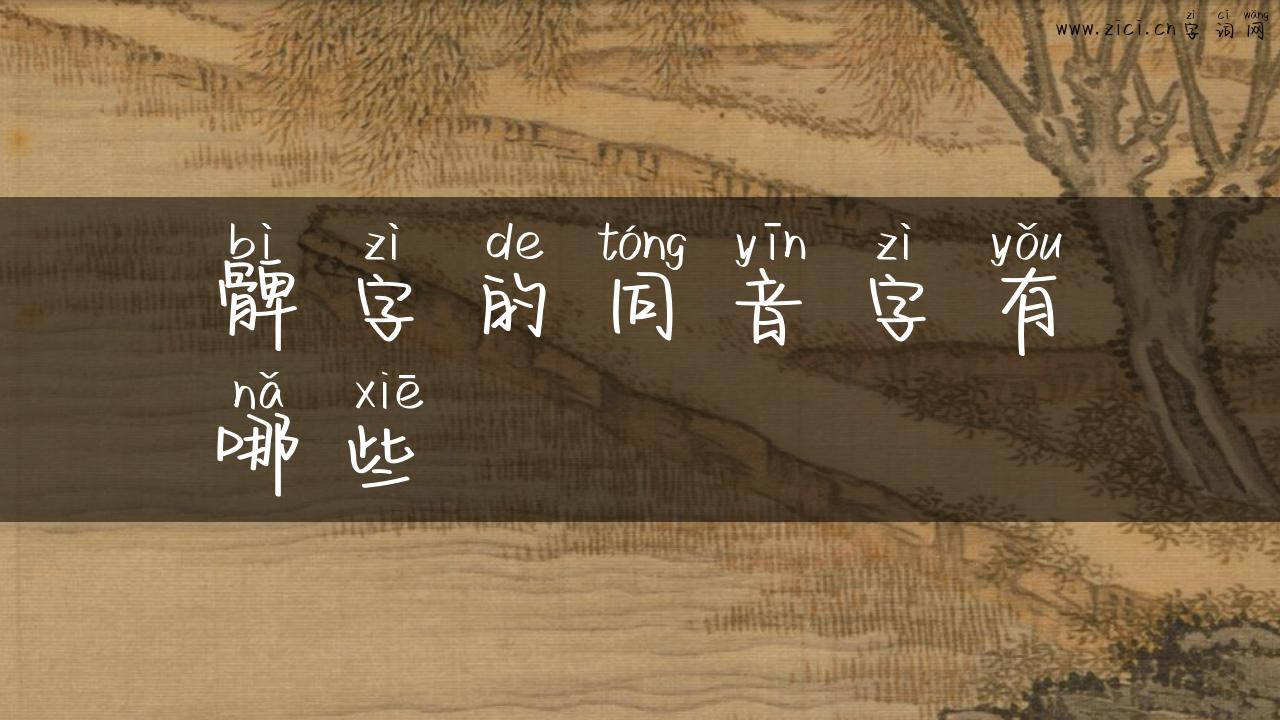 zì cí wǎng
www.zici.cn字词网
bì zì de tóng yīn zì yǒu
髀字的同音字有
nǎ xiē
哪些